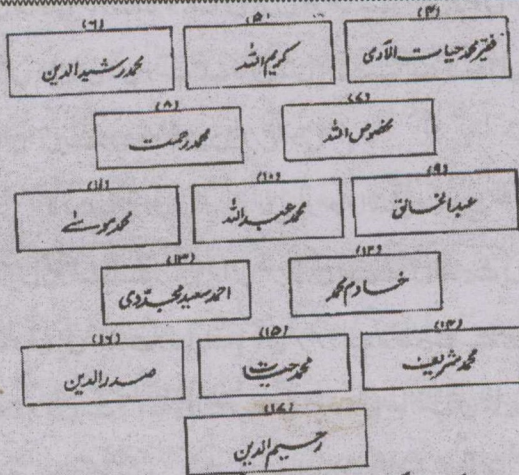 (۴) (۵) (۶)
فقیر محمد حیات الآری کریم اللہ محمد رشید الدین
(۷) (۸)
مخصوص اللہ محمد رحمت
(۹) (۱۰) (۱۱)
عبد الخالق محمد عبد اللہ محمد موسٰے
(۱۲) (۱۳)
خادم محمد احمد سعید مجددی
(۱۴) (۱۵) (۱۶)
محمد شریف محمد حیات صدر الدین
(۱۷)
رحیم الدین